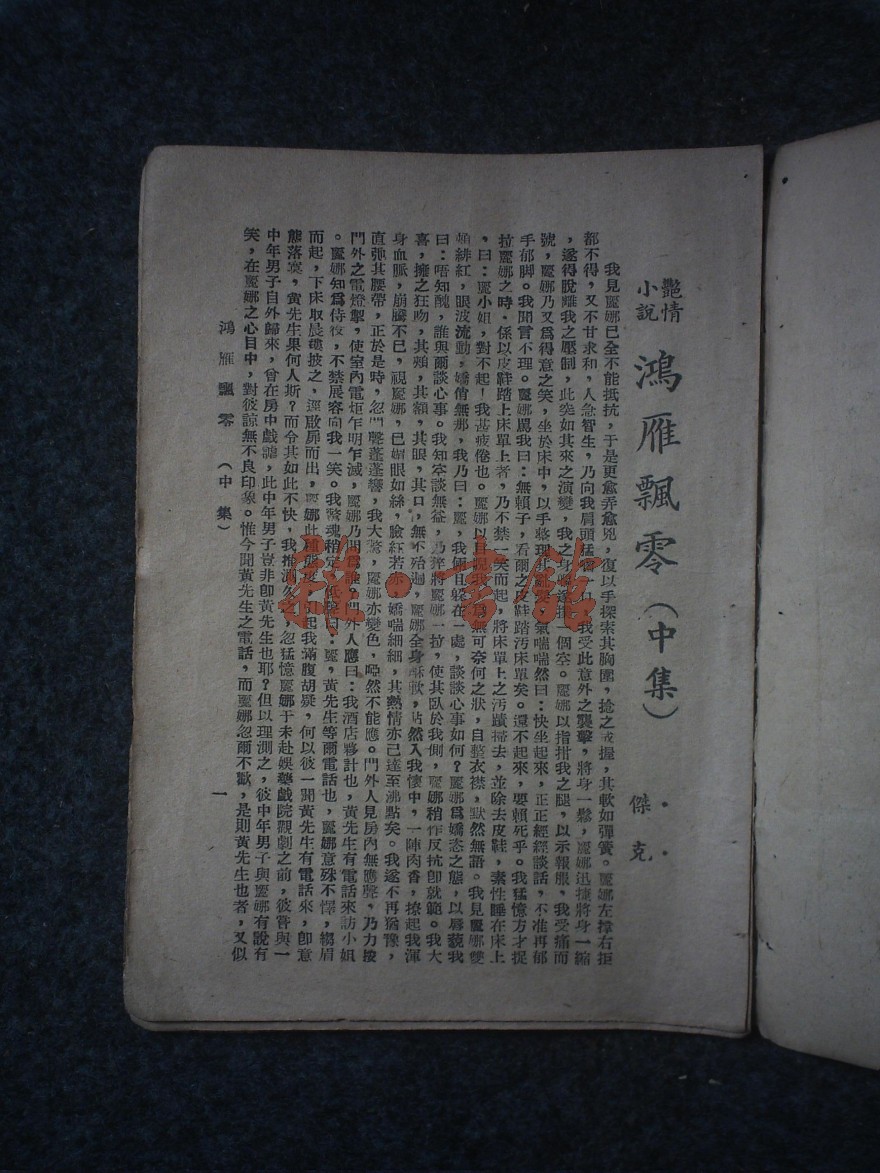 艷情小說
鴻雁飄零(中集)
傑克
我見麗娜已全不能抵抗,于是更愈弄愈兇,復以手探索其胸圍,捻之或握,其軟如彈簧。麗娜左撐右拒
都不得,又不甘求和,人急智生,乃向我肩頭猛嚙一口,我受此意外之襲擊,將身一鬆,麗娜迅速將身一縮
,遂得脫離我之壓制,此突如其來之演變,我之身
個空。麗娜以指拑我之腿,以示報服,我受痛而
號,麗娜乃又爲得意之笑,坐於床中,以手整理
氣喘喘然曰:快坐起來,正正經經談話,不准再郁
手郁脚。我聞言不理。麗娜罵我曰:無賴子,看爾之皮鞋踏汚床單矣。還不起來,要賴死乎。我猛憶方才捉
拉麗娜之時,係以皮鞋踏上床單上者,乃不禁
笑而起,將床單上之汚蹟掃去,並除去皮鞋,索性睡在床上
,曰:麗小姐,對不起!我甚疲倦也。麗娜以
無可奈何之狀,自整衣襟,默然無語。我見麗娜雙
頰緋紅,眼波流動,嬌俏無那,我乃曰:麗,我倆且躲在一處,談談心事如何?麗娜爲嬌恣之態,以唇藐我
曰:唔知醜,誰與爾談心事。我知空談無益,乃
將麗娜一拉,使其臥於我側,麗娜稍作反抗卽就範。我大
喜,擁之狂吻,其頰,其額,其眼,其口,無不殆遍,麗娜全身酥軟,
然入我懷中,一陣肉香,撩起我渾
身血脈,崩騰不已,視麗娜,已媚眼如絲,臉紅若
,嬌喘細細,其熱情亦已達至沸點矣。我遂不再猶豫,
直弛其腰帶,正於是時,忽門聲蓬蓬響,我大驚,麗娜亦變色,啞然不能應。門外人見房內無應聲,乃力按
門外之電燈掣,使室內電炬乍明乍滅,麗娜乃問爲誰。門外人應曰:我酒店夥計也,黃先生有電話來訪小姐
。麗娜知爲侍役,不禁展容向我一笑。我驚魂稍定,低聲曰:麗,黃先生等爾電話也,麗娜意殊不懌,縐眉
而起,下床取晨褸披之,逕啟扉而出,麗娜此種態度,引起我滿腹胡疑,何以彼一聞黃先生有電話來,卽意
態落寞,黃先生果何人斯?而令其如此不快,我推測久之,忽猛憶麗娜于未赴娛樂戲院觀劇之前,彼嘗與一
中年男子自外歸來,曾在房中戲謔,此中年男子豈非卽黃先生也耶?但以理測之,彼中年男子與麗娜有說有
笑,在麗娜之心目中,對彼諒無不良印象。惟今聞黃先生之電話,而麗娜忽爾不歡,是則黃先生也者,又似
鴻雁飄零(中集)
一
雜·書館